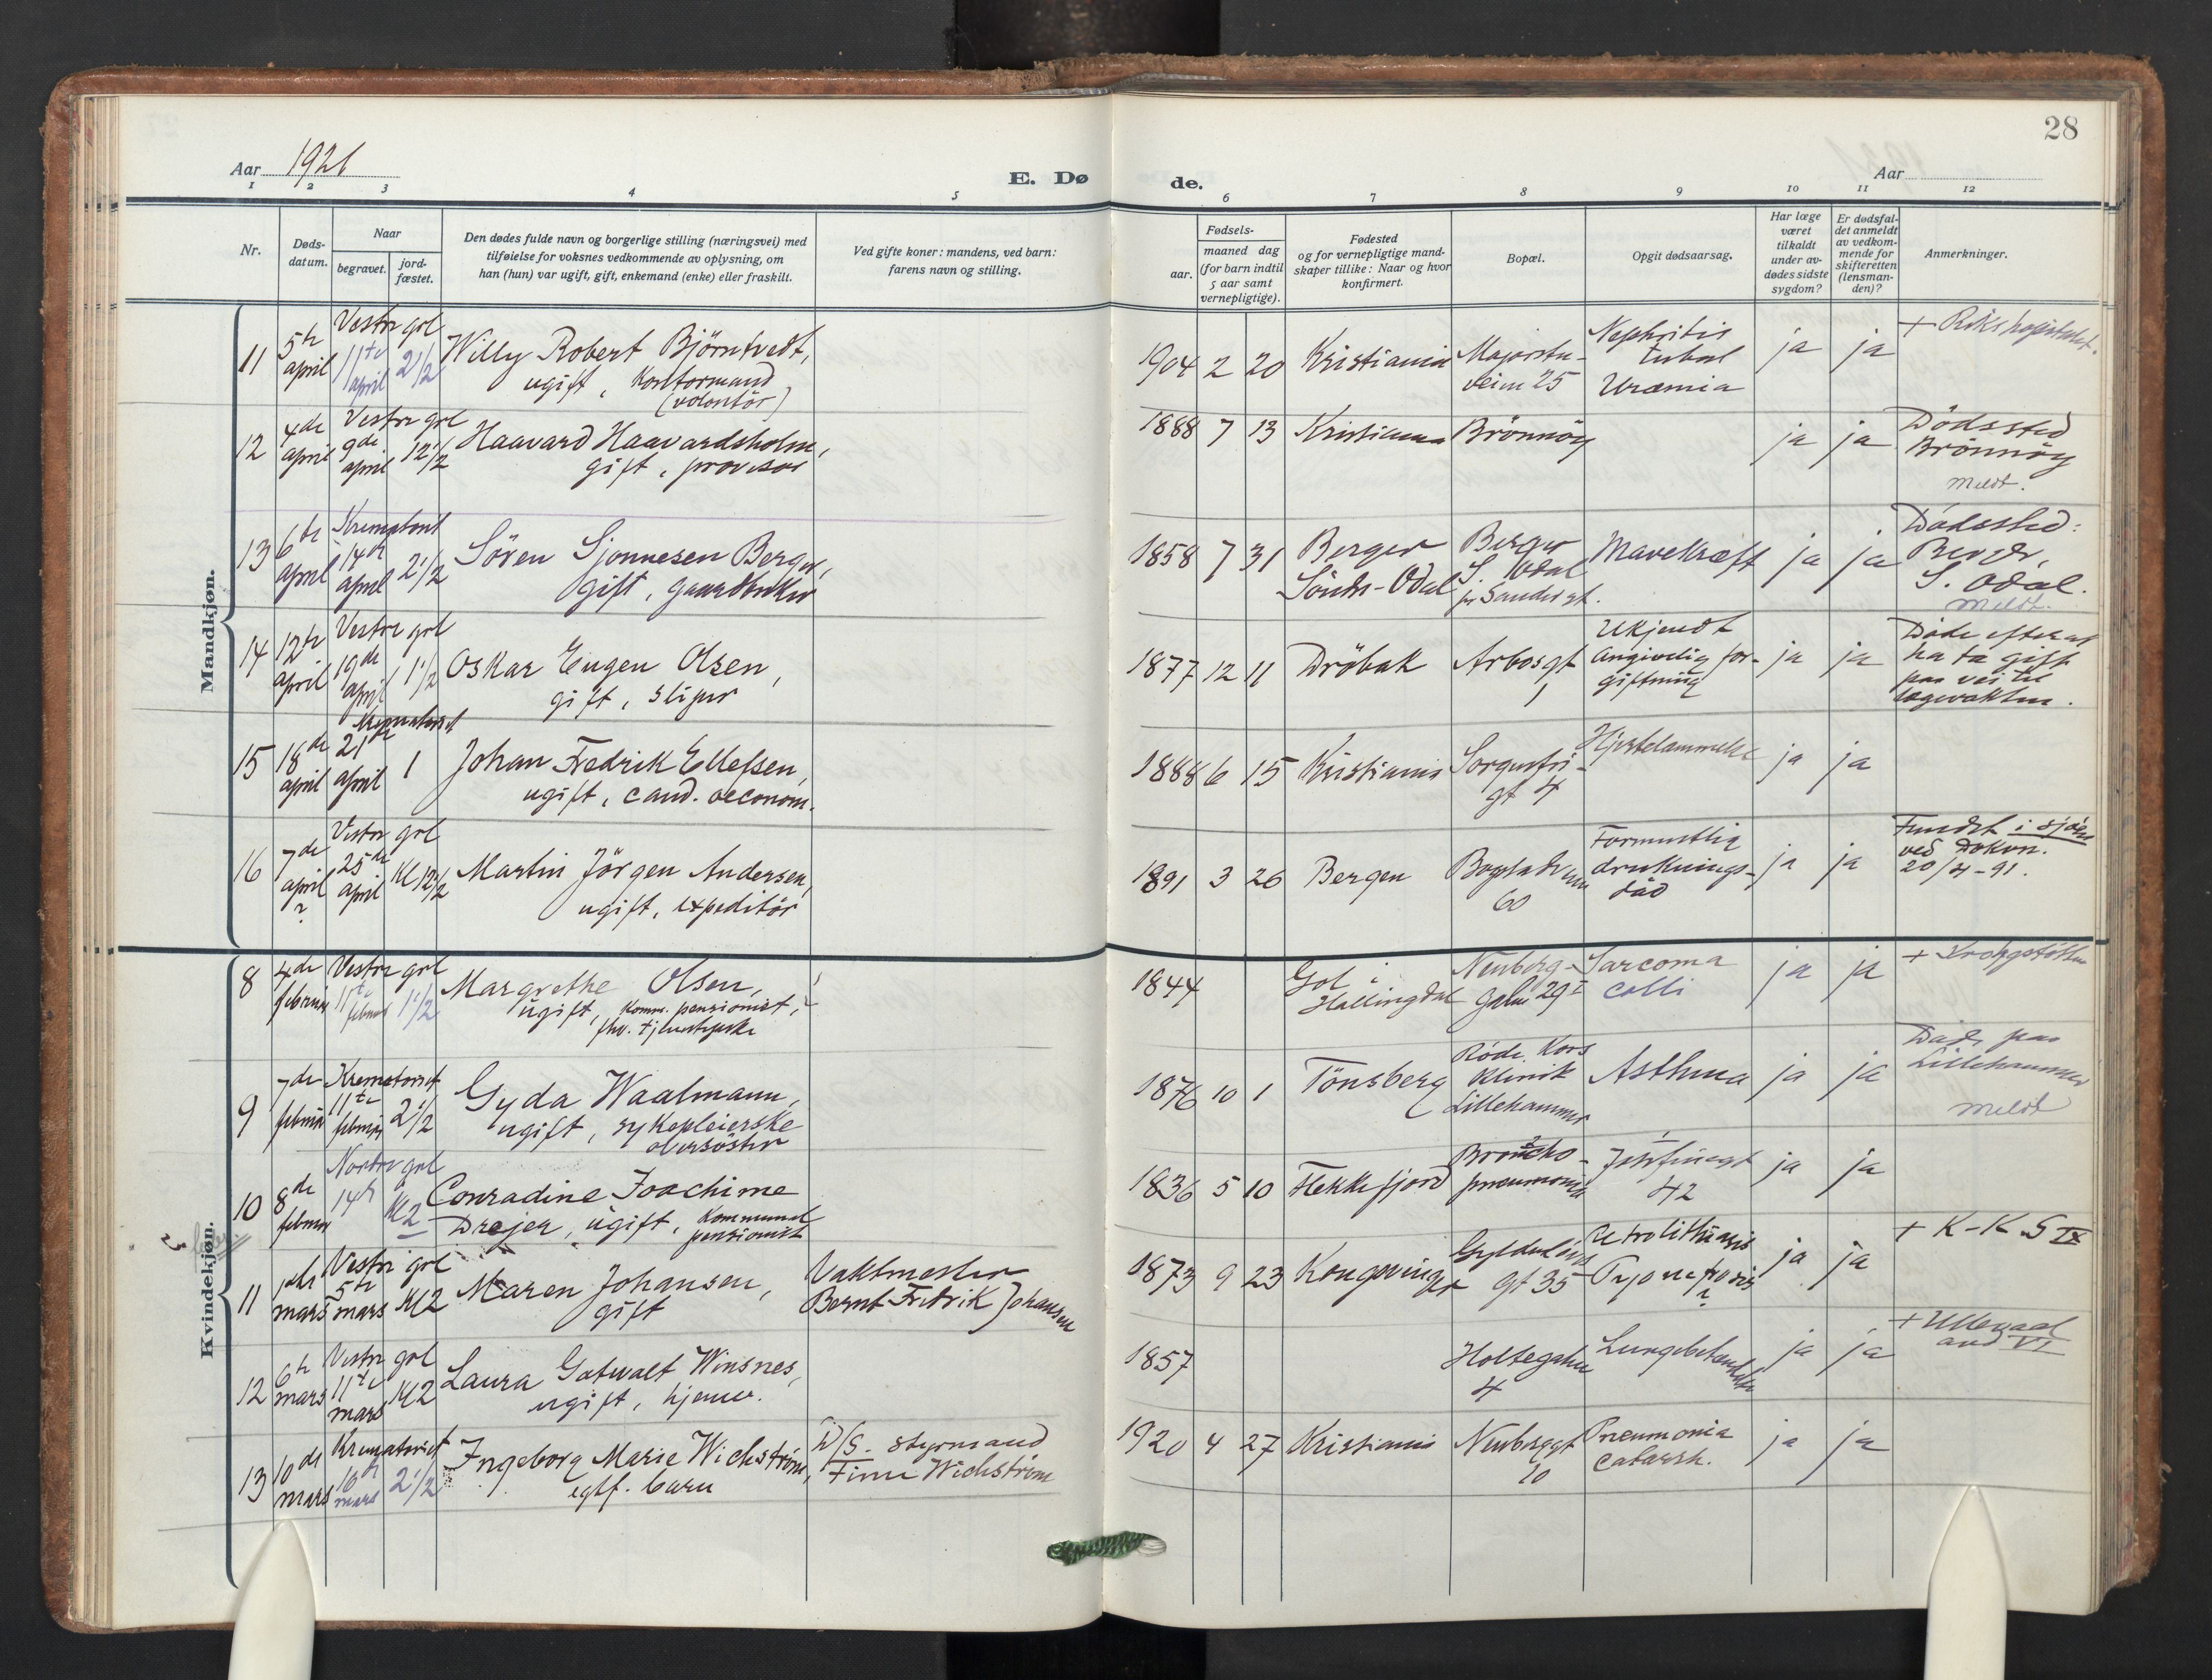 28
Aar 1921
E. Dø
de.
Aar
1 2 3 4 5 6 7 8 9 10 11 12
Nr.
Døds-
datum.
Naar
begravet.
jord-
fæstet.
Den dødes fulde navn og borgerlige stilling (næringsvei) med
tilføielse for voksnes vedkommende av oplysning, om
han (hun) var ugift, gift, enkemand (enke) eller fraskilt.
Ved gifte koner: mandens, ved barn:
farens navn og stilling.
Fødsels-
aar.
maaned dag
(for barn indtil
5 aar samt
vernepligtige).
Fødested
og for vernepligtige mand-
skaper tillike: Naar og hvor
konfirmert.
Bopæl.
Opgit dødsaarsag.
Har læge
været
tilkaldt
under av-
dødes sidste
sygdom?
Er dødsfal-
det anmeldt
av vedkom-
mende for
skifteretten
(lensman-
den)?
Anmerkninger.
Mandkjøn.
11
5te
april
Vestre grl
11te
april
2 1/2
Willy Robert Björntvedt,
ugift, Kontormand
(volontör)
1904 2 20
Kristiania
Majorstu-
veien 25
Nephritis
tubul
Uræmia
ja ja
+ Rikshospitalet.
12
4de
april
Vestre grl
9de
april
12 1/2
Haavard Haavardsholm,
gift, provisor
1888 7 13
Kristiania
Brönnöy
ja ja
Dödssted
Brönnöy
Meldt.
13
6te
april
Krematoriet
14de
april
2 1/2
Sören Sjonnesen Berger,
gift, gaardbruker
1858 7 31
Berger
Söndr-Odal
Berger
S. Odal
pr Sander st.
Mavekræft
ja ja
Dödssted:
Berger,
S. Odal.
Meldt.
14
12te
april
Vestre grl
19de
april
1 1/2
Oskar Eugen Olsen,
gift, sliper
1877 12 11
Dröbak
Arbosgt
1
Ukjendt
Angivelig for-
giftning
ja ja
Döde efter at
ha ta gift
paa vei til
lægevakten.
15
18de
april
Krematoriet
21de
april
1
Johan Fredrik Ellefsen,
ugift, cand. oeconom.
1888 6 15
Kristiania
Sorgenfri-
gt 4
Hjertelammelse
ja ja
16
7de
april
?
Vestre grl
25de
april
Kl 12 1/2
Martin Jörgen Andersen,
ugift, expeditör
1891 3 26
Bergen
Bogstadveien
60
Formentlig
druknings-
död
ja ja
Fundet i sjöen
ved Dokon.
20/4-91.
Kvindekjøn.
8
4de
februar
Vestre grl
11te
februar
1 1/2
Margrethe Olsen,
ugift, Komm. pensionist,
fhv. tjenestepike
1844
Gol i
Hallingdal
Neuberg-
gaten 29 I
Sarcoma
colli
ja ja
+ Krohgstötten
9
7de
februar
Krematoriet
11te
februar
2 1/2
Gyda Waalmann,
ugift, sykepleierske
oversöster
1876 10 1
Tönsberg
Röde Kors
Klinik
Lillehammer
Asthma
ja ja
Döde paa
Lillehammer
Meldt
10
8de
februar
Nordre grl
14de
Kl 2
Conradine Joachime
Drejer, ugift, Kommunal
pensionist
1836 5 10
Flekkefjord
Broncho-
pneumonia
Josefinegt
42
ja ja
11
1ste
mars
Vestre grl
5te
mars
Kl 2
Maren Johansen,
gift
Vaktmester
Bernt Fredrik Johansen
1873 9 23
Kongsvinger
Gyldenlöves
gt 35
Uretrolithiasis
Pyonefrosis
?
ja ja
+ K-K S IX
12
6te
mars
Vestre grl
11te
mars
Kl 2
Laura Gotwalt Winsnes,
ugift, hjemv.
1857
Holtegaten
4
Lungebetændelse
ja ja
+ Ullevaal
avd VI
13
10de
mars
Krematoriet
16de
mars
2 1/2
Ingeborg Marie Wichström,
egtf. barn
D/S. styrmand
Finn Wichström
1920 4 27
Kristiania
Neubergt
10
Pneumonia
catarrh.
ja ja